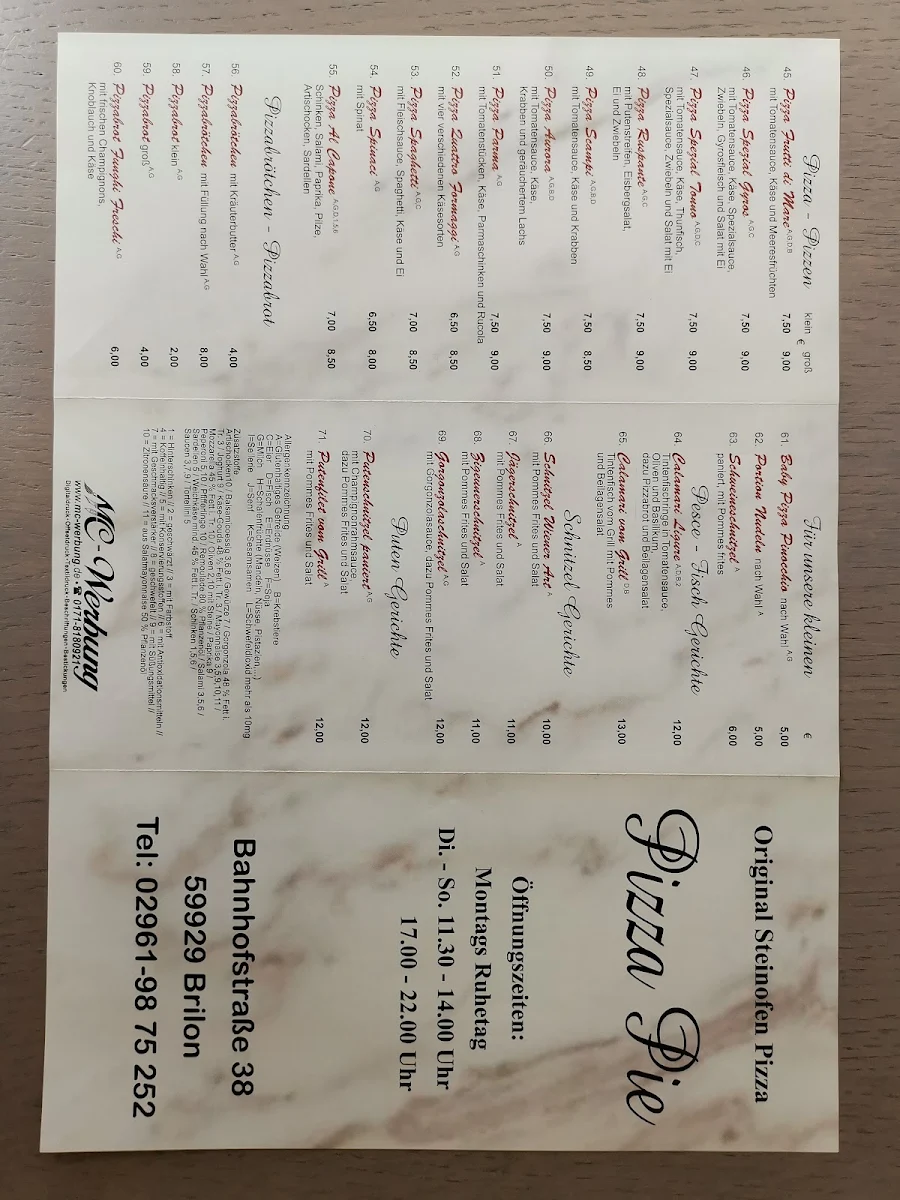 Pizza - Pizzen klein € groß
45. Pizza Frutti di Mare A,G,D,B 7,50 9,00
mit Tomatensauce, Käse und Meeresfrüchten
46. Pizza Spezial Gyros A,G,C 7,50 9,00
mit Tomatensauce, Käse, Spezialsauce,
Zwiebeln, Gyrosfleisch und Salat mit Ei
47. Pizza Spezial Tonno A,G,D,C 7,50 9,00
mit Tomatensauce, Käse, Thunfisch,
Spezialsauce, Zwiebeln und Salat mit Ei
48. Pizza Ruspante A,G,C 7,50 9,00
mit Putenstreifen, Eisbergsalat,
Ei und Zwiebeln
49. Pizza Scampi A,G,B,D 7,50 8,50
mit Tomatensauce, Käse und Krabben
50. Pizza Aurora A,G,B,D 7,50 9,00
mit Tomatensauce, Käse,
Krabben und geräuchertem Lachs
51. Pizza Parma A,G 7,50 9,00
mit Tomatenstücken, Käse, Parmaschinken und Rucola
52. Pizza Quattro Formaggi A,G 6,50 8,50
mit vier verschiedenen Käsesorten
53. Pizza Spaghetti A,G,C 7,00 8,50
mit Fleischsauce, Spaghetti, Käse und Ei
54. Pizza Spinaci A,G 6,50 8,00
mit Spinat
55. Pizza Al Capone A,G,D,1,5,6 7,00 8,50
Schinken, Salami, Paprika, Pilze,
Artischocken, Sardellen
Pizzabrötchen - Pizzabrot
56. Pizzabrötchen mit Kräuterbutter A,G 4,00
57. Pizzabrötchen mit Füllung nach Wahl A,G 8,00
58. Pizzabrot klein A,G 2,00
59. Pizzabrot groß A,G 4,00
60. Pizzabrot Funghi Freschi A,G 6,00
mit frischen Champignons,
Knoblauch und Käse
Für unsere kleinen €
61. Baby Pizza Pinochio nach Wahl A,G 5,00
62. Portion Nudeln nach Wahl A 5,00
63. Schweineschnitzel A 6,00
paniert, mit Pommes frites
Pesce - Fisch Gerichte
64. Calamari Ligure A,D,B,2 12,00
Tintenfischringe in Tomatensauce,
Oliven und Basilikum,
dazu Pizzabrot und Beilagensalat
65. Calamari vom Grill D,B 13,00
Tintenfisch vom Grill mit Pommes
und Beilagensalat
Schnitzel Gerichte
66. Schnitzel Wiener Art A 10,00
mit Pommes Frites und Salat
67. Jägerschnitzel A 11,00
mit Pommes Frites und Salat
68. Zigeunerschnitzel A 11,00
mit Pommes Frites und Salat
69. Gorgonzolaschnitzel A,G 12,00
mit Gorgonzolasauce, dazu Pommes Frites und Salat
Puten Gerichte
70. Putenschnitzel paniert A,G 12,00
mit Champignonrahmsauce,
dazu Pommes Frites und Salat
71. Putenfilet vom Grill A 12,00
mit Pommes Frites und Salat
Allergenkennzeichnung
A=Glutenhaltiges Getreide (Weizen) B=Krebstiere
C=Eier D=Fisch E=Erdnüsse F=Soja
G=Milch H=Schalenfrüchte (Mandeln, Nüsse, Pistazien,...)
I=Sellerie J=Senf K=Sesamsamen L=Schwefeldioxid mehr als 10mg
Zusatzstoffe
Artischocken10 / Balsamicoessig 3,6,8 / Gewürze 7 / Gorgonzola 48 % Fett i.
Tr. 3 / Joghurt 9 / Käse-Gouda 48 % Fett i. Tr. 3 / Mayonnaise 3,5,9,10,11 /
Mozzarella 45 % Fett i.Tr. 10 / Oliven 2,10 mit Steine / Paprika 9 /
Peperoni 5,10 / Pfifferlinge 10 / Remoulade 80 % Pflanzenöl / Salami 3,5,6 /
Sardellen / Weichkäse mind. 45 % Fett i. Tr. / Schinken 1,5,6 /
Saucen 3,7,9 / Tortellini 5
1 = Hinterschinken // 2 = geschwärzt // 3 = mit Farbstoff
4 = Koffeinhaltig // 5 = mit Konservierungsstoffen // 6 = mit Antioxidationsmitteln //
7 = mit Geschmacksverstärker // 8 = geschwefelt // 9 = mit Süßungsmittel //
10 = Zitronensäure // 11 = aus Salatmayonnaise 50 % Pflanzenöl
MC-Werbung
www.mc-werbung.de • ☎ 0171-8180921
Digitaldruck-Offsetdruck-Textildruck-Beschriftungen-Bestickungen
Original Steinofen Pizza
Pizza Pie
Öffnungszeiten:
Montags Ruhetag
Di. - So. 11.30 - 14.00 Uhr
17.00 - 22.00 Uhr
Bahnhofstraße 38
59929 Brilon
Tel: 02961-98 75 252